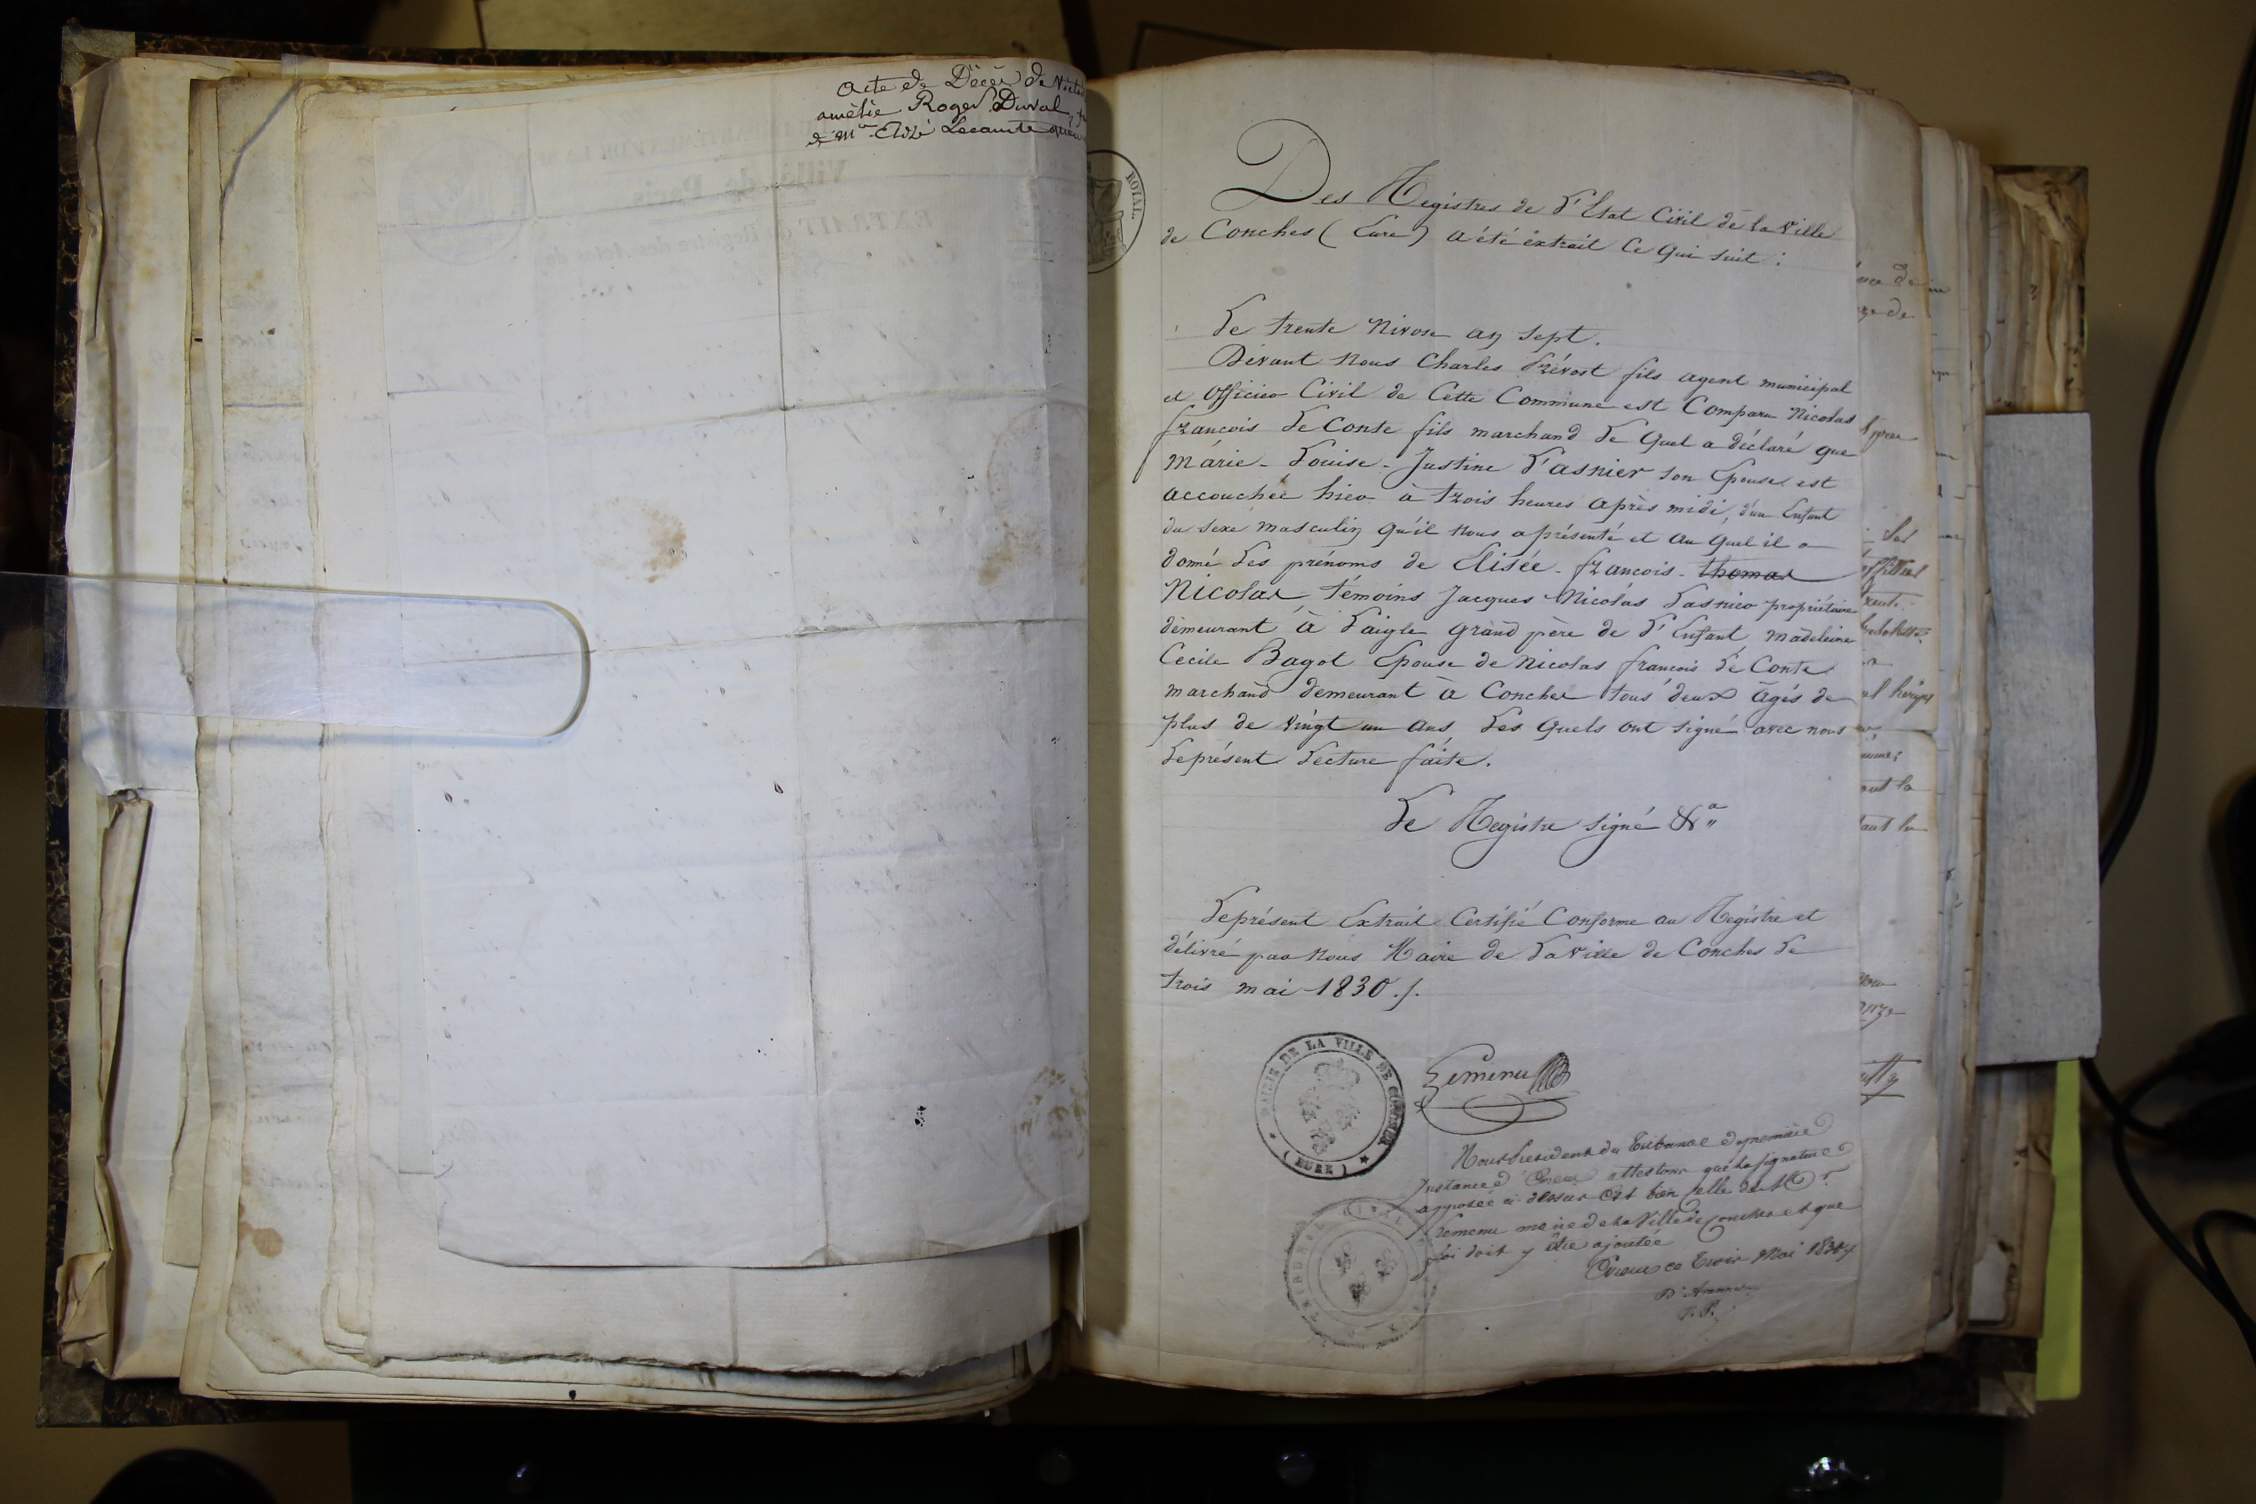 Acte de Décès de
amélie Roger Duval,
de Mr. Elisé Lecomte
Ville de Paris
EXTRAIT du Registre des Actes de
ROYAL.
Des Registres de l'Etat Civil de la Ville
de Conches (Eure) a été extrait Ce qui suit :
Le trente Nivose an sept.
Devant nous Charles Prévost fils agent municipal
et officier Civil de Cette Commune est Comparu Nicolas
françois Le Conte fils marchand Le quel a déclaré que
Marie - Louise - Justine Lasnier son Epouse est
accouchée hier à trois heures après midi, d'un Enfant
du sexe masculin qu'il nous a présenté et au quel il a
donné Les prénoms de Elisée - françois - thomas
Nicolas, témoins Jacques Nicolas Lasnier propriétaire
demeurant à Laigle grand père de l'Enfant, madeleine
Cecile Bagot Epouse de Nicolas françois Le Conte
marchand demeurant à Conches tous deux âgés de
plus de vingt un ans, Les quels ont signé avec nous
Le présent Lecture faite.
Le Registre signé &a
Le présent Extrait Certifié Conforme au Registre et
délivré par nous Maire de La Ville de Conches Le
trois mai 1830 ./.
MAIRIE DE LA VILLE DE CONCHES
(EURE)
Lemenu
Nous President du Tribunal de premiere
Instance d'Evreux attestons que la signature
apposée ci dessus est bien celle de Mr.
Lemenu maire de la Ville de Conches et que
foi doit y être ajoutée
Evreux ce Trois Mai 1830